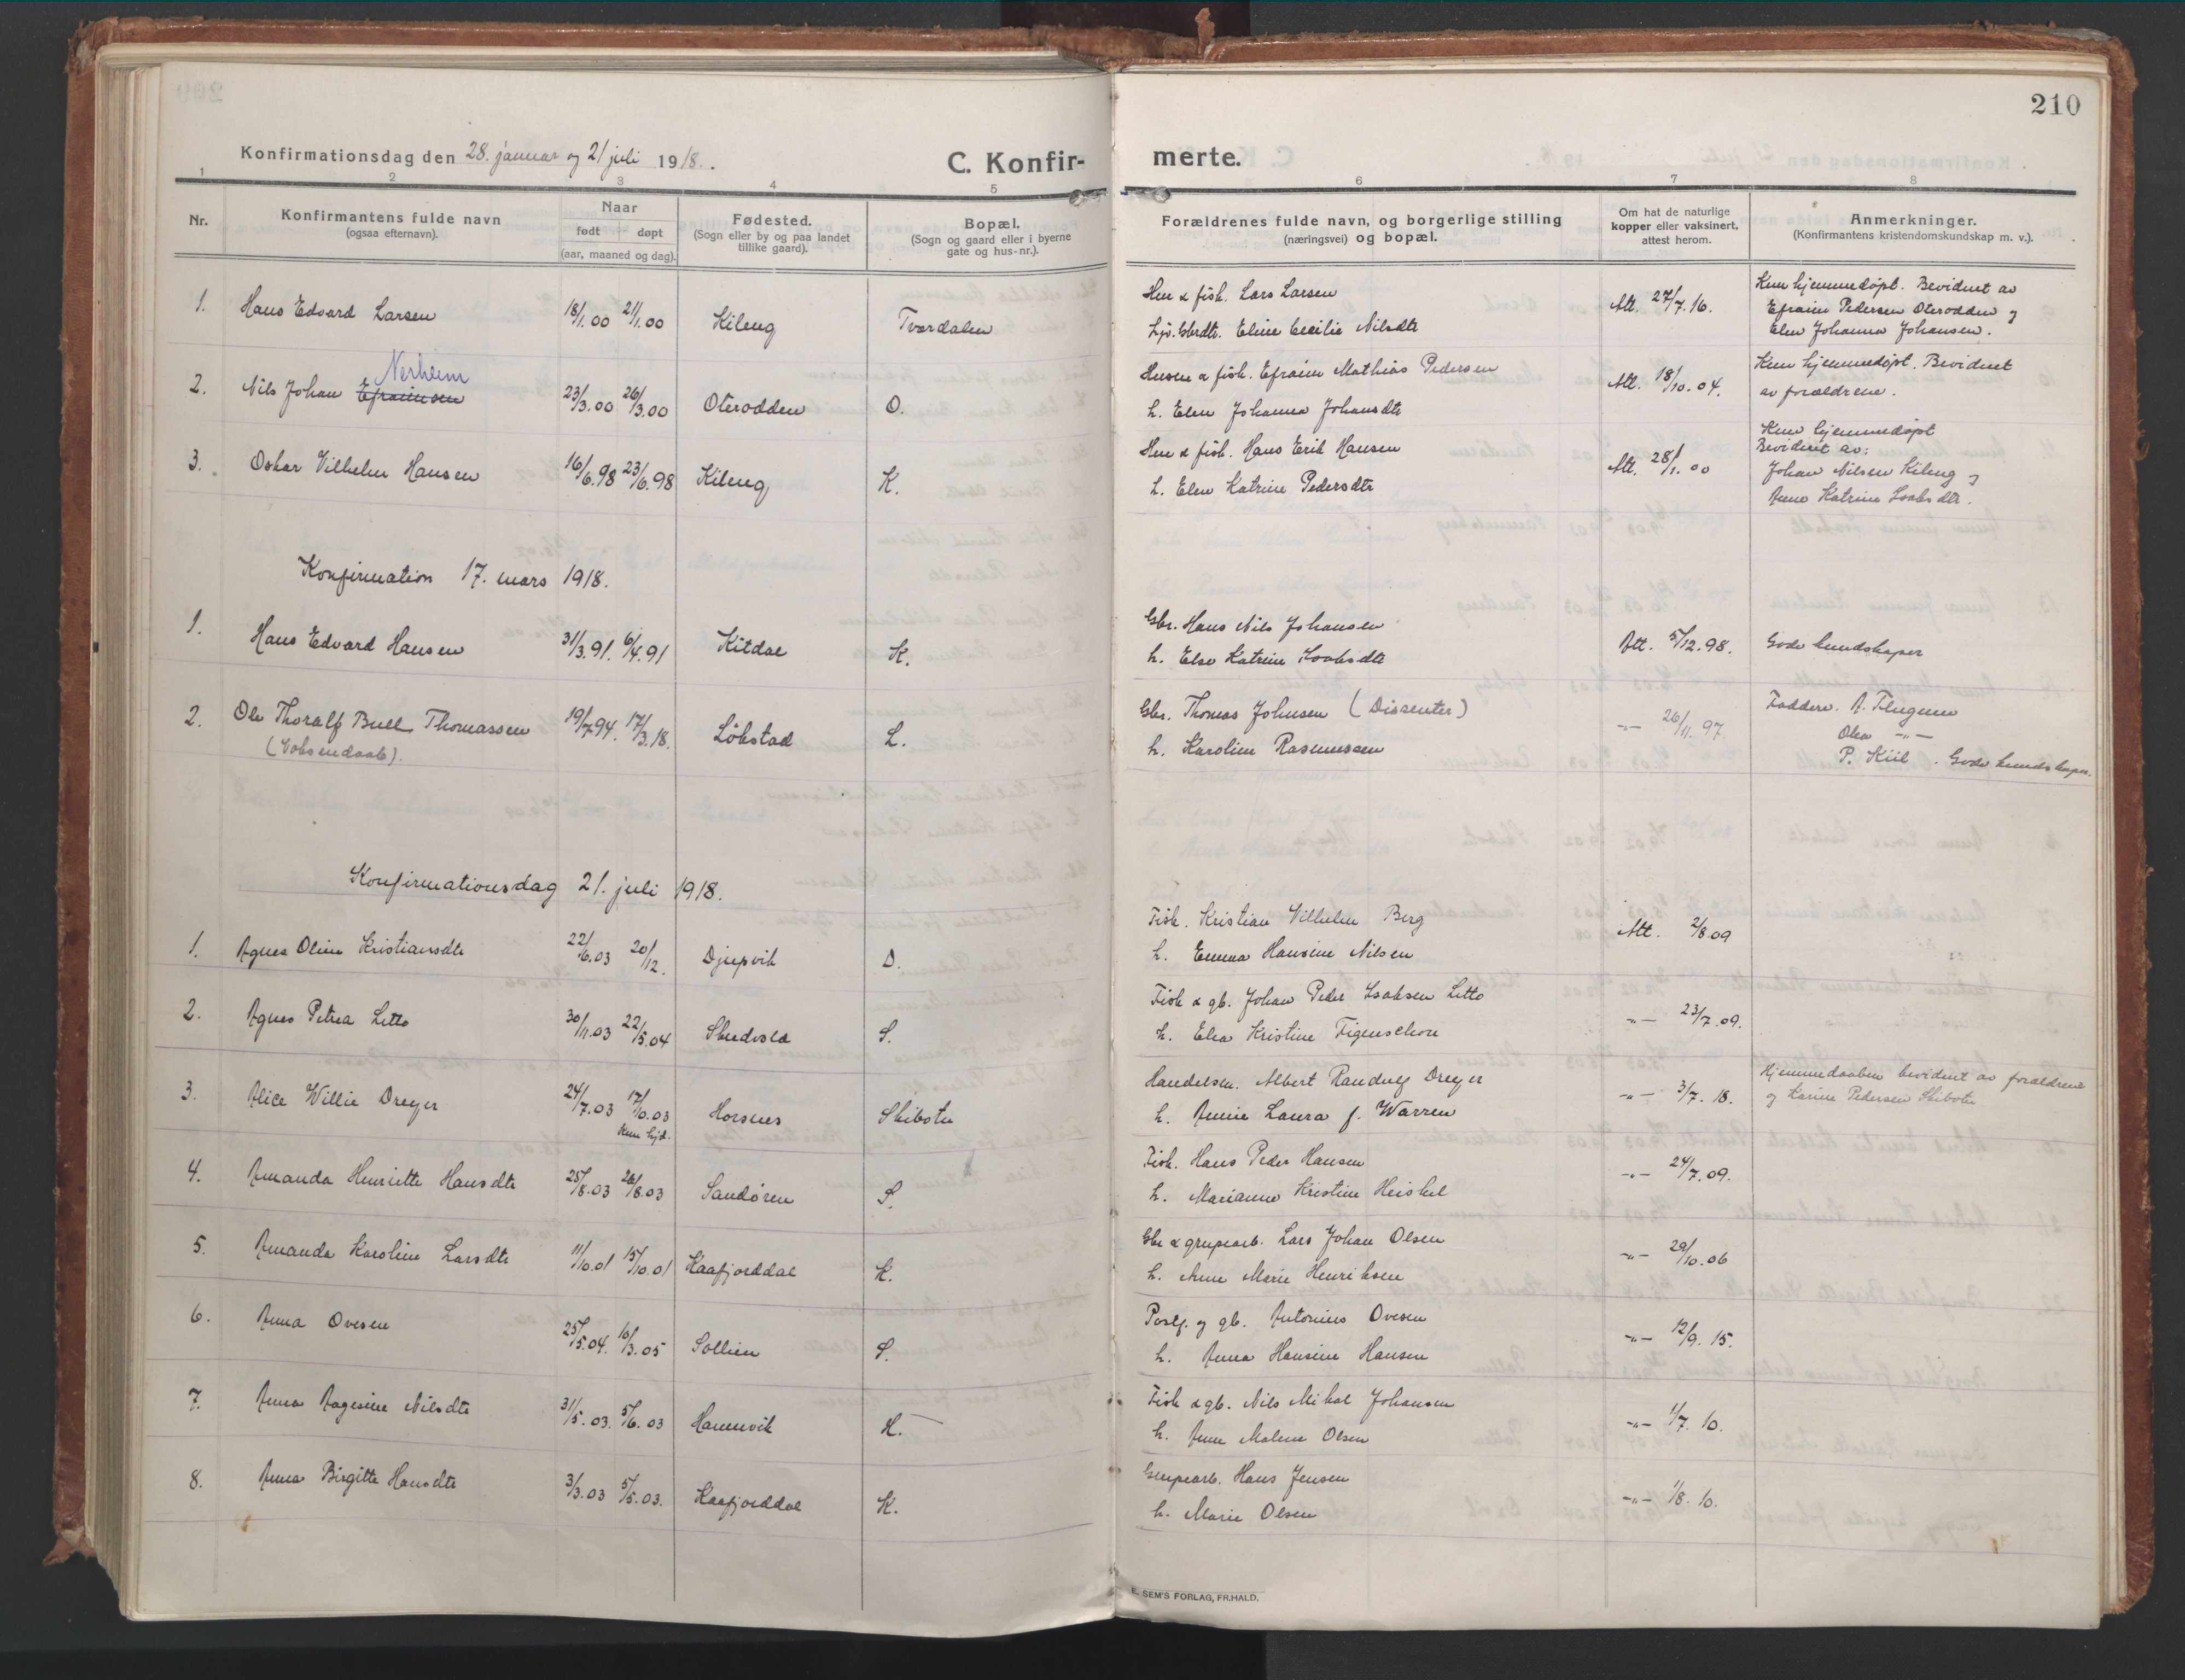 210
Konfirmationsdag den 28. januar og 21 juli 1918.
C. Konfir-
merte.
1 2 3 4 5 6 7 8
Nr.
Konfirmantens fulde navn
(ogsaa efternavn).
Naar
født døpt
(aar, maaned og dag).
Fødested.
(Sogn eller by og paa landet
tillike gaard).
Bopæl.
(Sogn og gaard eller i byerne
gate og hus-nr.).
Forældrenes fulde navn, og borgerlige stilling
(næringsvei) og bopæl.
Om hat de naturlige
kopper eller vaksinert,
attest herom.
Anmerkninger.
(Konfirmantens kristendomskundskap m. v.).
1. Hans Edvard Larsen 18/1.00 21/1.00 Kileng Tverdalen
Hm & fisk. Lars Larsen
Eline Cecilie Nilsdtr
Att. 27/7.16.
Kun hjemmedøpt. Bevidnet av
Efraim Pedersen Oterodden og
Elen Johanna Johansen.
Nerheim
2. Nils Johan Efraimsen 23/3.00 26/3.00 Oterodden O.
Husm & fisk. Efraim Mathias Pedersen
h. Elen Johanna Johansdtr
Att. 18/10.04.
Kun hjemmedøpt. Bevidnet
av forældrene.
3. Oskar Vilhelm Hansen 16/6.98 23/6.98 Kileng K.
Hm & fisk. Hans Erik Hansen
h. Elen Katrine Pedersdtr
Att. 28/1.00
Kun hjemmedøpt
Bevidnet av:
Johan Nilsen Kileng og
Anne Katrine Isaksdtr.
Konfirmation 17. mars 1918.
1. Hans Edvard Hansen 31/3.91. 6/4.91 Kitdal K.
Gbr. Hans Nils Johansen
h. Else Katrine Isaksdtr
Att. 5/12.98.
Gode kundskaper
2. Ole Thoralf Bull Thomassen 19/7.94. 17/3.18. Løkstad L.
(Voksendaab).
Gbr. Thomas Johnsen (Dissenter)
h. Karoline Rasmussen
-"- 26/11.97.
Faddere. A. Flugum
Olea -"-
P. Kiil. Gode kundskaper.
Konfirmationsdag 21. juli 1918.
1. Agnes Oline Kristiansdtr 22/6.03 20/12. Djupvik D.
Fisk. Kristian Vilhelm Berg
h. Emma Hansine Nilsen
Att. 2/8.09
2. Agnes Petrea Letto 30/11.03 22/5.04 Skudvold S.
Fisk & gb. Johan Peder Isaksen Letto
h. Elea Kristine Figenschou
-"- 23/7.09.
3. Alice Willie Dreyer 24/7.03 17/10.03 Horsnes Skibotn
Kun hjd.
Handelsm. Albert Randulf Dreyer
h. Annie Laura f. Warren
-"- 3/7.18.
Hjemmedaaben bevidnet av forældrene
og Karine Pedersen Skibotn
4. Amanda Henriette Hansdtr 25/8.03 26/8.03 Sandøren S.
Fisk. Hans Peder Hansen
h. Marianne Kristine Heiskel
-"- 24/7.09.
5. Amanda Karoline Larsdtr 11/10.01 15/10.01 Kaafjorddal K.
Gbr & grupearb. Lars Johan Olsen
h. Anne Marie Henriksen
-"- 29/10.06
6. Anna Ovesen 25/5.04. 16/3.05 Sollien S.
Poslf. og gb. Antonius Ovesen
h. Anna Hansine Hansen
-"- 12/9.15.
7. Anna Aagesine Nilsdtr 31/5.03. 5/6.03 Hamnvik H.
Fisk & gb. Nils Mikal Johansen
h. Anne Malene Olsen
-"- 1/7.10.
8. Anna Birgitte Hansdtr 3/3.03 5/5.03. Kaafjorddal K.
Grupearb. Hans Jensen
h. Marie Olsen
-"- 1/8.10.
E. SEM'S FORLAG, FR.HALD.